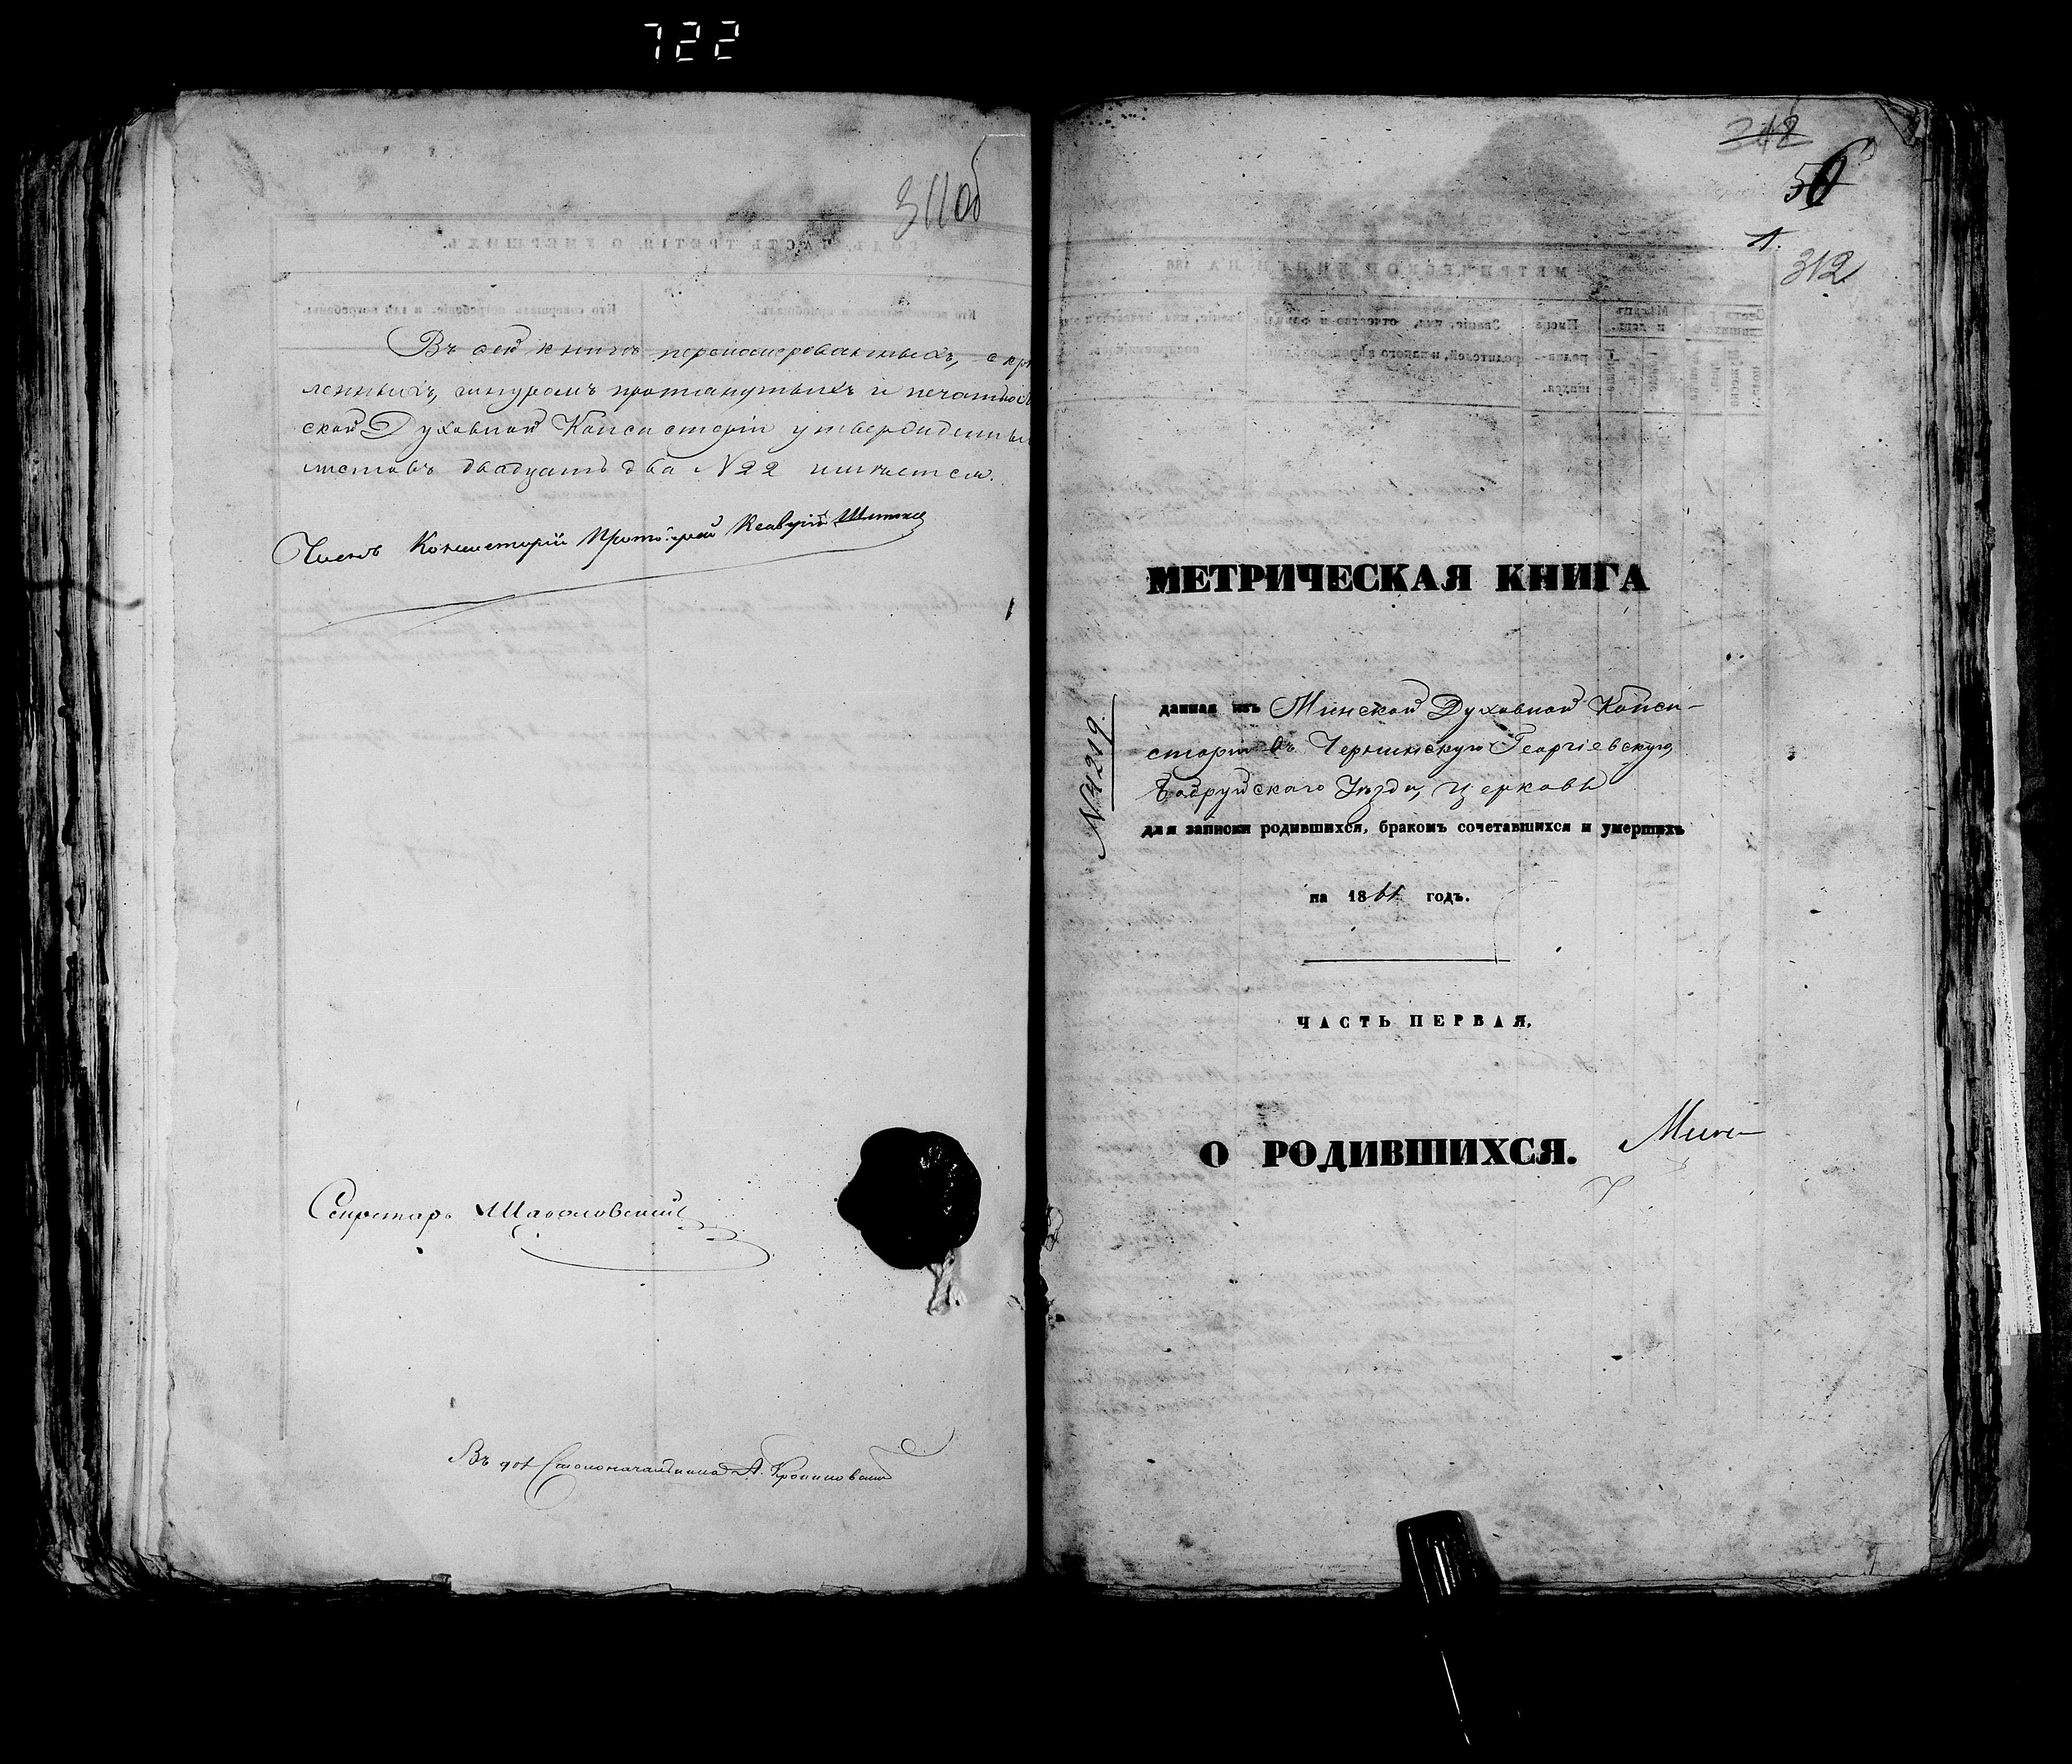 722
311об
Въ сей книгѣ перенумерованныхъ, скрѣ
ленныхъ, шнуромъ протянутыхъ и печатью
ской Духовной Консисторіи утвержденны
листовъ двадцать два №22 имѣется.
Членъ Консисторіи Протоіерей
Секретарь
Въ дол Столоначальника А.
212
50
1.
312
МЕТРИЧЕСКАЯ КНИГА
№4219
данная изъ Минской Духовной Конси-
сторіи въ Чернинскую Георгіевскую,
Бобруйскаго Уѣзда, церковь
для записки родившихся, бракомъ сочетавшихся и умершихъ
на 1861 годъ.
ЧАСТЬ ПЕРВАЯ.
О РОДИВШИХСЯ.
Мин